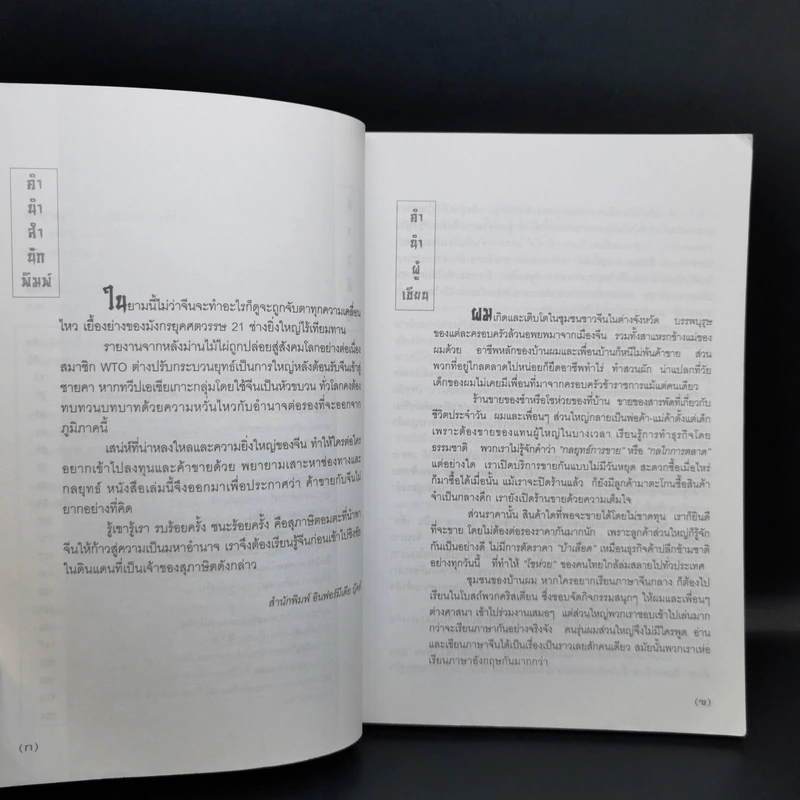 คำ
นำ
สำ
นัก
พิมพ์
ในยามนี้ไม่ว่าจีนจะทำอะไรก็ดูจะถูกจับตาทุกความเคลื่อน
ไหว เยื้องย่างของมังกรยุคศตวรรษ 21 ช่างยิ่งใหญ่ไร้เทียมทาน
รายงานจากหลังม่านไม้ไผ่ถูกปล่อยสู่สังคมโลกอย่างต่อเนื่อง
สมาชิก WTO ต่างปรับกระบวนยุทธ์เป็นการใหญ่หลังต้อนรับจีนเข้าสู่
ชายคา หากทวีปเอเชียเกาะกลุ่มโดยใช้จีนเป็นหัวขบวน ทั่วโลกคงต้อง
ทบทวนบทบาทด้วยความหวั่นไหวกับอำนาจต่อรองที่จะออกจาก
ภูมิภาคนี้
เสน่ห์ที่น่าหลงใหลและความยิ่งใหญ่ของจีน ทำให้ใครต่อใคร
อยากเข้าไปลงทุนและค้าขายด้วย พยายามเสาะหาช่องทางและ
กลยุทธ์ หนังสือเล่มนี้จึงออกมาเพื่อประกาศว่า ค้าขายกับจีนไม่
ยากอย่างที่คิด
รู้เขารู้เรา รบร้อยครั้ง ชนะร้อยครั้ง คือสุภาษิตอมตะที่นำพา
จีนให้ก้าวสู่ความเป็นมหาอำนาจ เราจึงต้องเรียนรู้จีนก่อนเข้าไปชิงชัย
ในดินแดนที่เป็นเจ้าของสุภาษิตดังกล่าว
สำนักพิมพ์ อินฟอร์มีเดีย บุ๊คส์
(ก)
คำ
นำ
ผู้
เขียน
ผมเกิดและเติบโตในชุมชนชาวจีนในต่างจังหวัด บรรพบุรุษ
ของแต่ละครอบครัวล้วนอพยพมาจากเมืองจีน รวมทั้งสาแหรกข้างแม่ของ
ผมด้วย อาชีพหลักของบ้านผมและเพื่อนบ้านก็หนีไม่พ้นค้าขาย ส่วน
พวกที่อยู่ไกลตลาดไปหน่อยก็ยึดอาชีพทำไร่ ทำสวนผัก น่าแปลกที่วัย
เด็กของผมไม่เคยมีเพื่อนที่มาจากครอบครัวข้าราชการแม้แต่คนเดียว
ร้านขายของชำหรือโชห่วยของที่บ้าน ขายของสารพัดที่เกี่ยวกับ
ชีวิตประจำวัน ผมและเพื่อนๆ ส่วนใหญ่กลายเป็นพ่อค้า-แม่ค้าตั้งแต่เด็ก
เพราะต้องขายของแทนผู้ใหญ่ในบางเวลา เรียนรู้การทำธุรกิจโดย
ธรรมชาติ พวกเราไม่รู้จักคำว่า "กลยุทธ์การขาย" หรือ "กลไกการตลาด"
แต่อย่างใด เราเปิดบริการขายกันแบบไม่มีวันหยุด สะดวกซื้อเมื่อไหร่
ก็มาซื้อได้เมื่อนั้น แม้เราจะปิดร้านแล้ว ก็ยังมีลูกค้ามาตะโกนซื้อสินค้า
จำเป็นกลางดึก เรายังเปิดร้านขายด้วยความเต็มใจ
ส่วนราคานั้น สินค้าใดที่พอจะขายได้โดยไม่ขาดทุน เราก็ยินดี
ที่จะขาย โดยไม่ต้องต่อรองราคากันมากนัก เพราะลูกค้าส่วนใหญ่ก็รู้จัก
กันเป็นอย่างดี ไม่มีการตัดราคา "บ้าเลือด" เหมือนธุรกิจค้าปลีกข้ามชาติ
อย่างทุกวันนี้ ที่ทำให้ "โชห่วย" ของคนไทยใกล้ล่มสลายไปทั่วประเทศ
ชุมชนของบ้านผม หากใครอยากเรียนภาษาจีนกลาง ก็ต้องไป
เรียนในโบสถ์พวกคริสเตียน ซึ่งชอบจัดกิจกรรมสนุกๆ ให้ผมและเพื่อนๆ
ต่างศาสนา เข้าไปร่วมงานเสมอๆ แต่ส่วนใหญ่พวกเราชอบเข้าไปเล่นมาก
กว่าจะเรียนภาษากันอย่างจริงจัง คนรุ่นผมส่วนใหญ่จึงไม่มีใครพูด อ่าน
และเขียนภาษาจีนได้เป็นเรื่องเป็นราวเลยสักคนเดียว สมัยนั้นพวกเราเห่อ
เรียนภาษาอังกฤษกันมากกว่า
(ข)